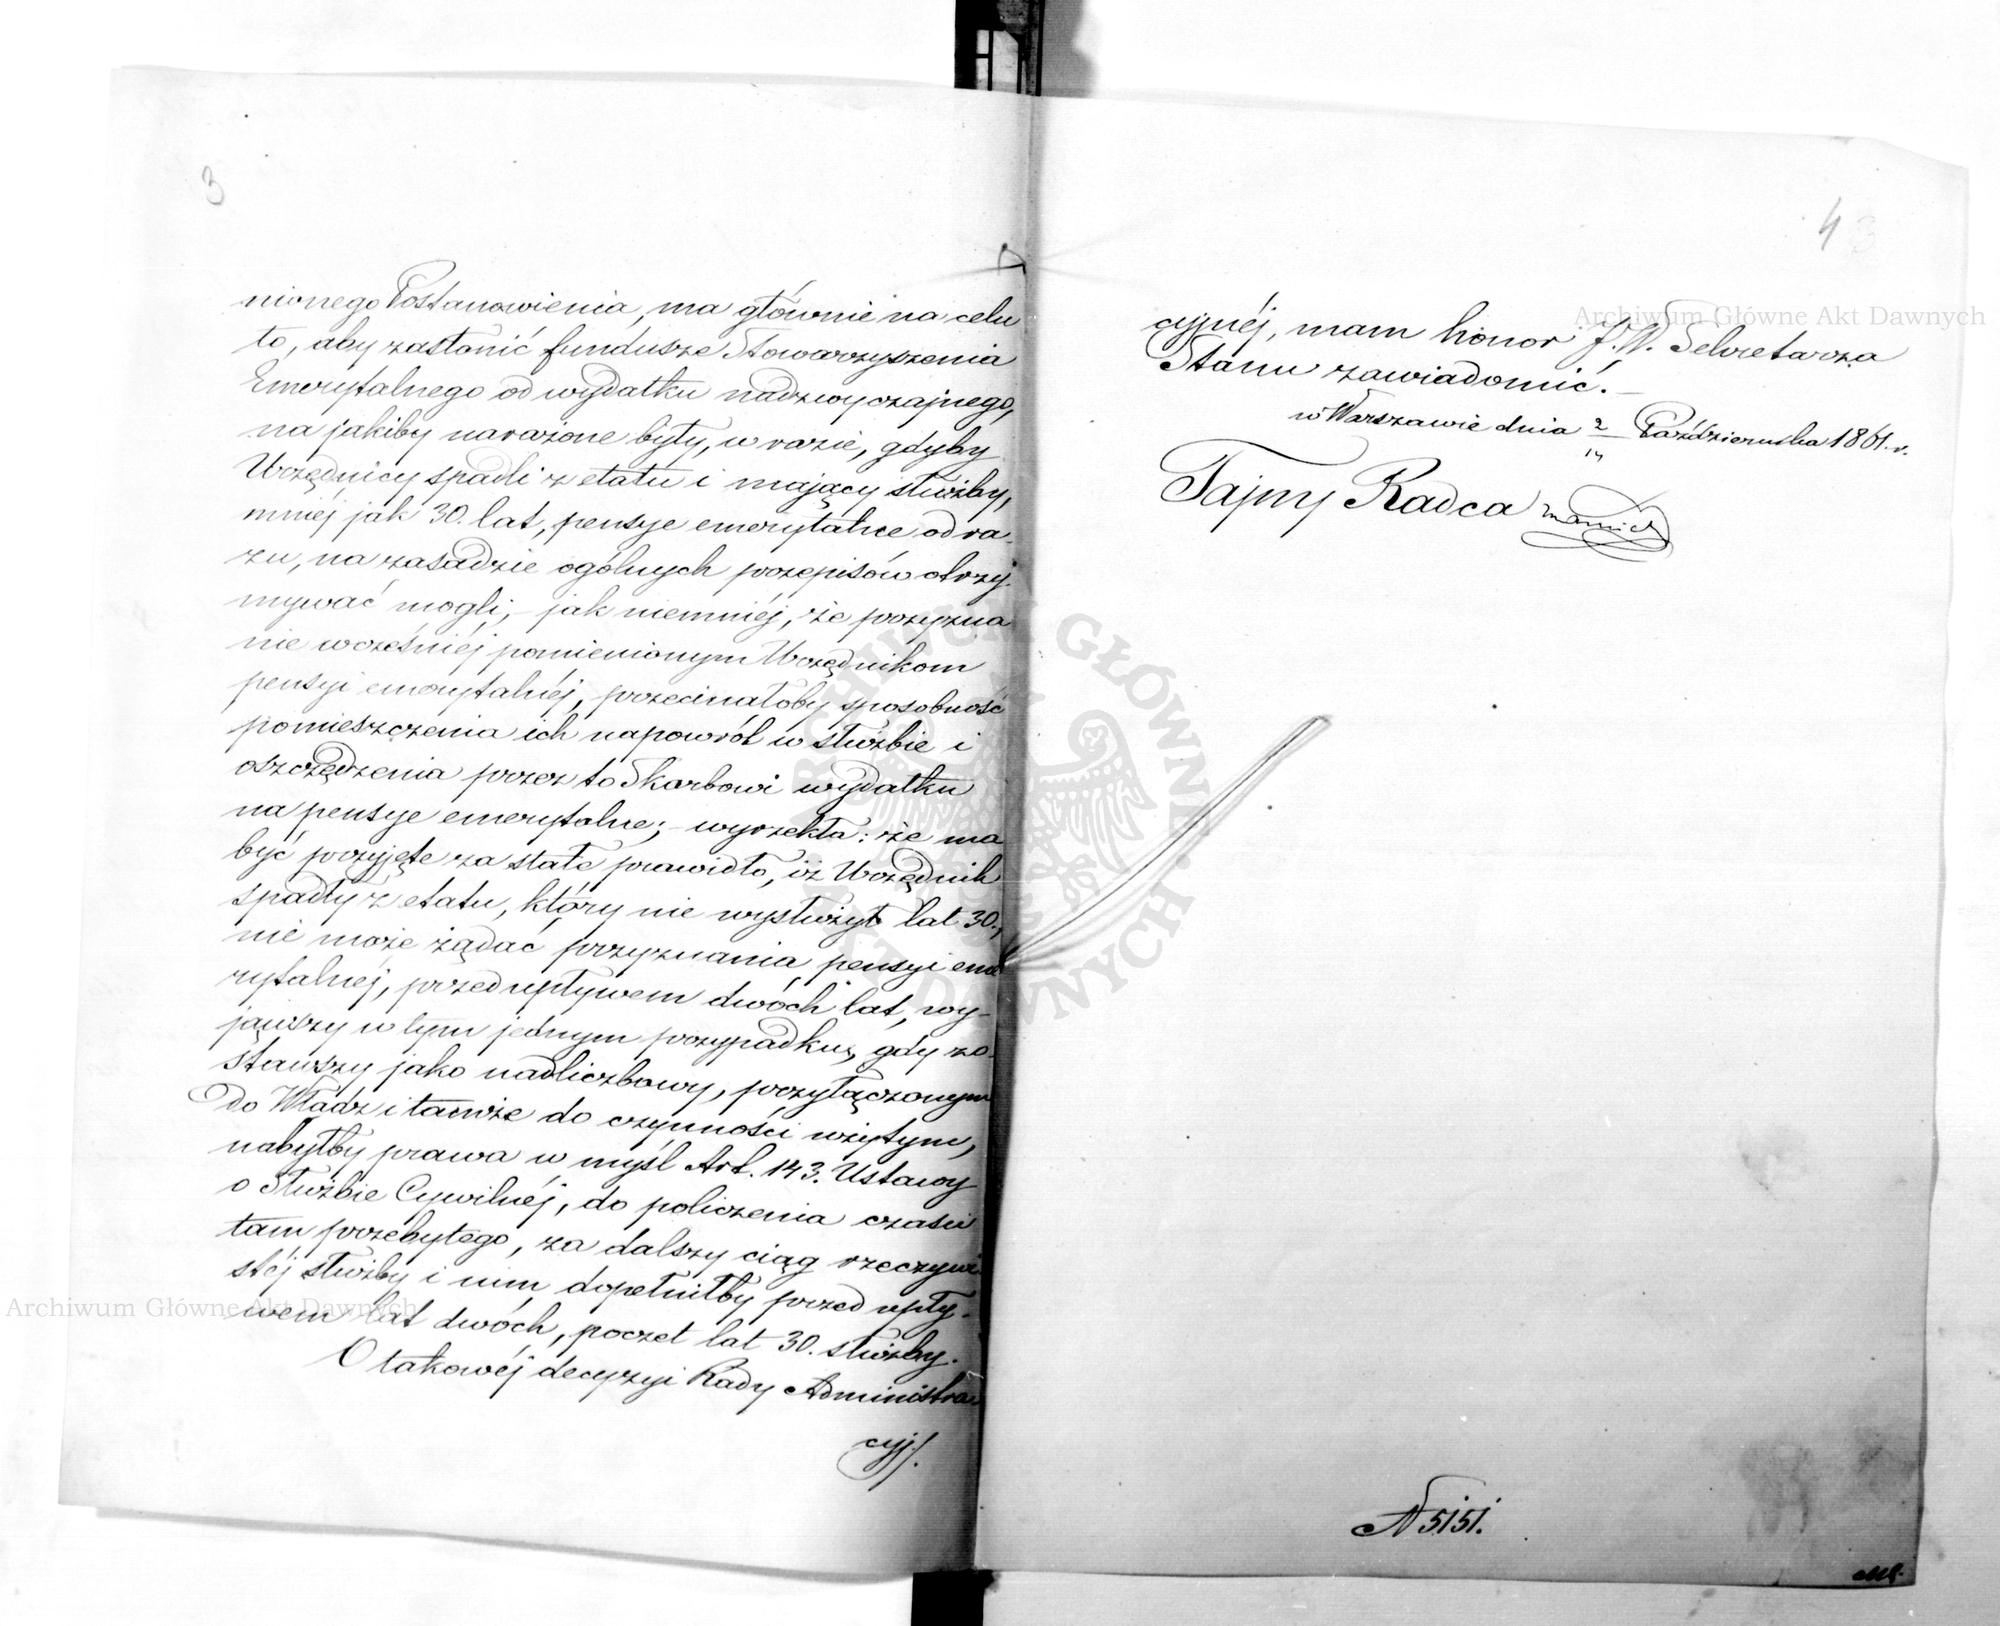 3
nionego Postanowienia, ma głównie na celu
to, aby zasłonić fundusze Stowarzyszenia
Emerytalnego od wydatku nadzwyczajnego,
na jakiby narażone były, w razie, gdyby
Urzędnicy spadli z etatu i mający służby,
mniéj jak 30. lat, pensye emerytalne odra-
zu, na zasadzie ogólnych przepisów otrzy-
mywać mogli; – jak niemniéj, że przyzna
nie wcześniéj pomienionym Urzędnikom
pensyi emerytalnéj, przecinałoby sposobność
pomieszczenia ich napowrót w służbie i
oszczędzenia przez to Skarbowi wydatku
na pensye emerytalne; – wyrzekła: że ma
być przyjęte za stałe prawidło, iż Urzędnik
spadły z etatu, który nie wysłużył lat 30.,
nie może żądać przyznania pensyi eme
rytalnéj, przed upływem dwóch lat, wy-
jąwszy w tym jednym przypadku, gdy zo-
stawszy jako nadliczbowy, przyłączonym
do Władz i tamże do czynności użytym,
nabyłby prawa w myśl Art. 143. Ustawy
o Służbie Cywilnéj, do policzenia czasu
tam przebytego, za dalszy ciąg rzeczywi-
stéj służby i nim dopełniłby przed upły-
wem lat dwóch, poczet lat 30. służby.
O takowéj decyzyi Rady Administra-
cyj/.
4 3
cyjnéj, mam honor J.W. Sekretarza
Stanu zawiadomić. –
w Warszawie dnia 2/14 Października 1861. r.
Tajny Radca
N 5151.
Archiwum Główne Akt Dawnych
Archiwum Główne Akt Dawnych
ARCHIWUM GŁÓWNE AKT DAWNYCH